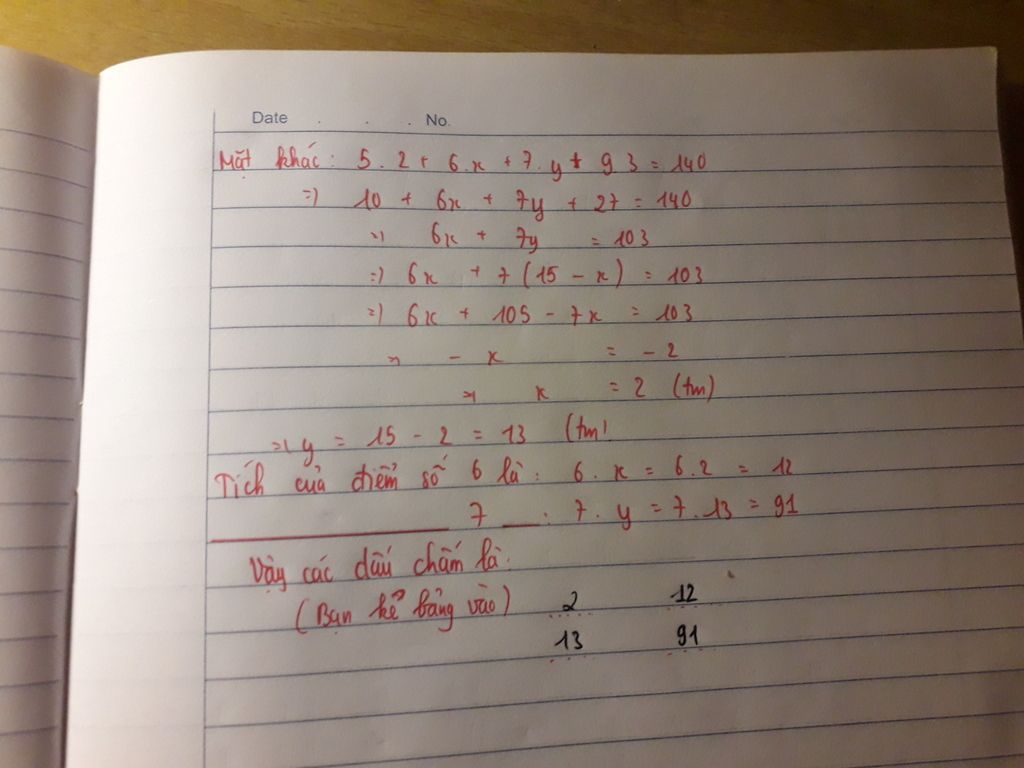 Date . . . No.
Mặt khác: 5.2 + 6.x + 7.y + 9 3 = 140
=) 10 + 6x + 7y + 27 = 140
=) 6x + 7y = 103
=) 6x + 7(15 - x) = 103
=) 6x + 105 - 7x = 103
=) - x = -2
=) x = 2 (tm)
=) y = 15 - 2 = 13 (tm)
Tích của điểm số 6 là: 6.x = 6.2 = 12
7 : 7.y = 7.13 = 91
Vậy các dấu chấm là:
(Bạn kẻ bảng vào) 2 12
13 91